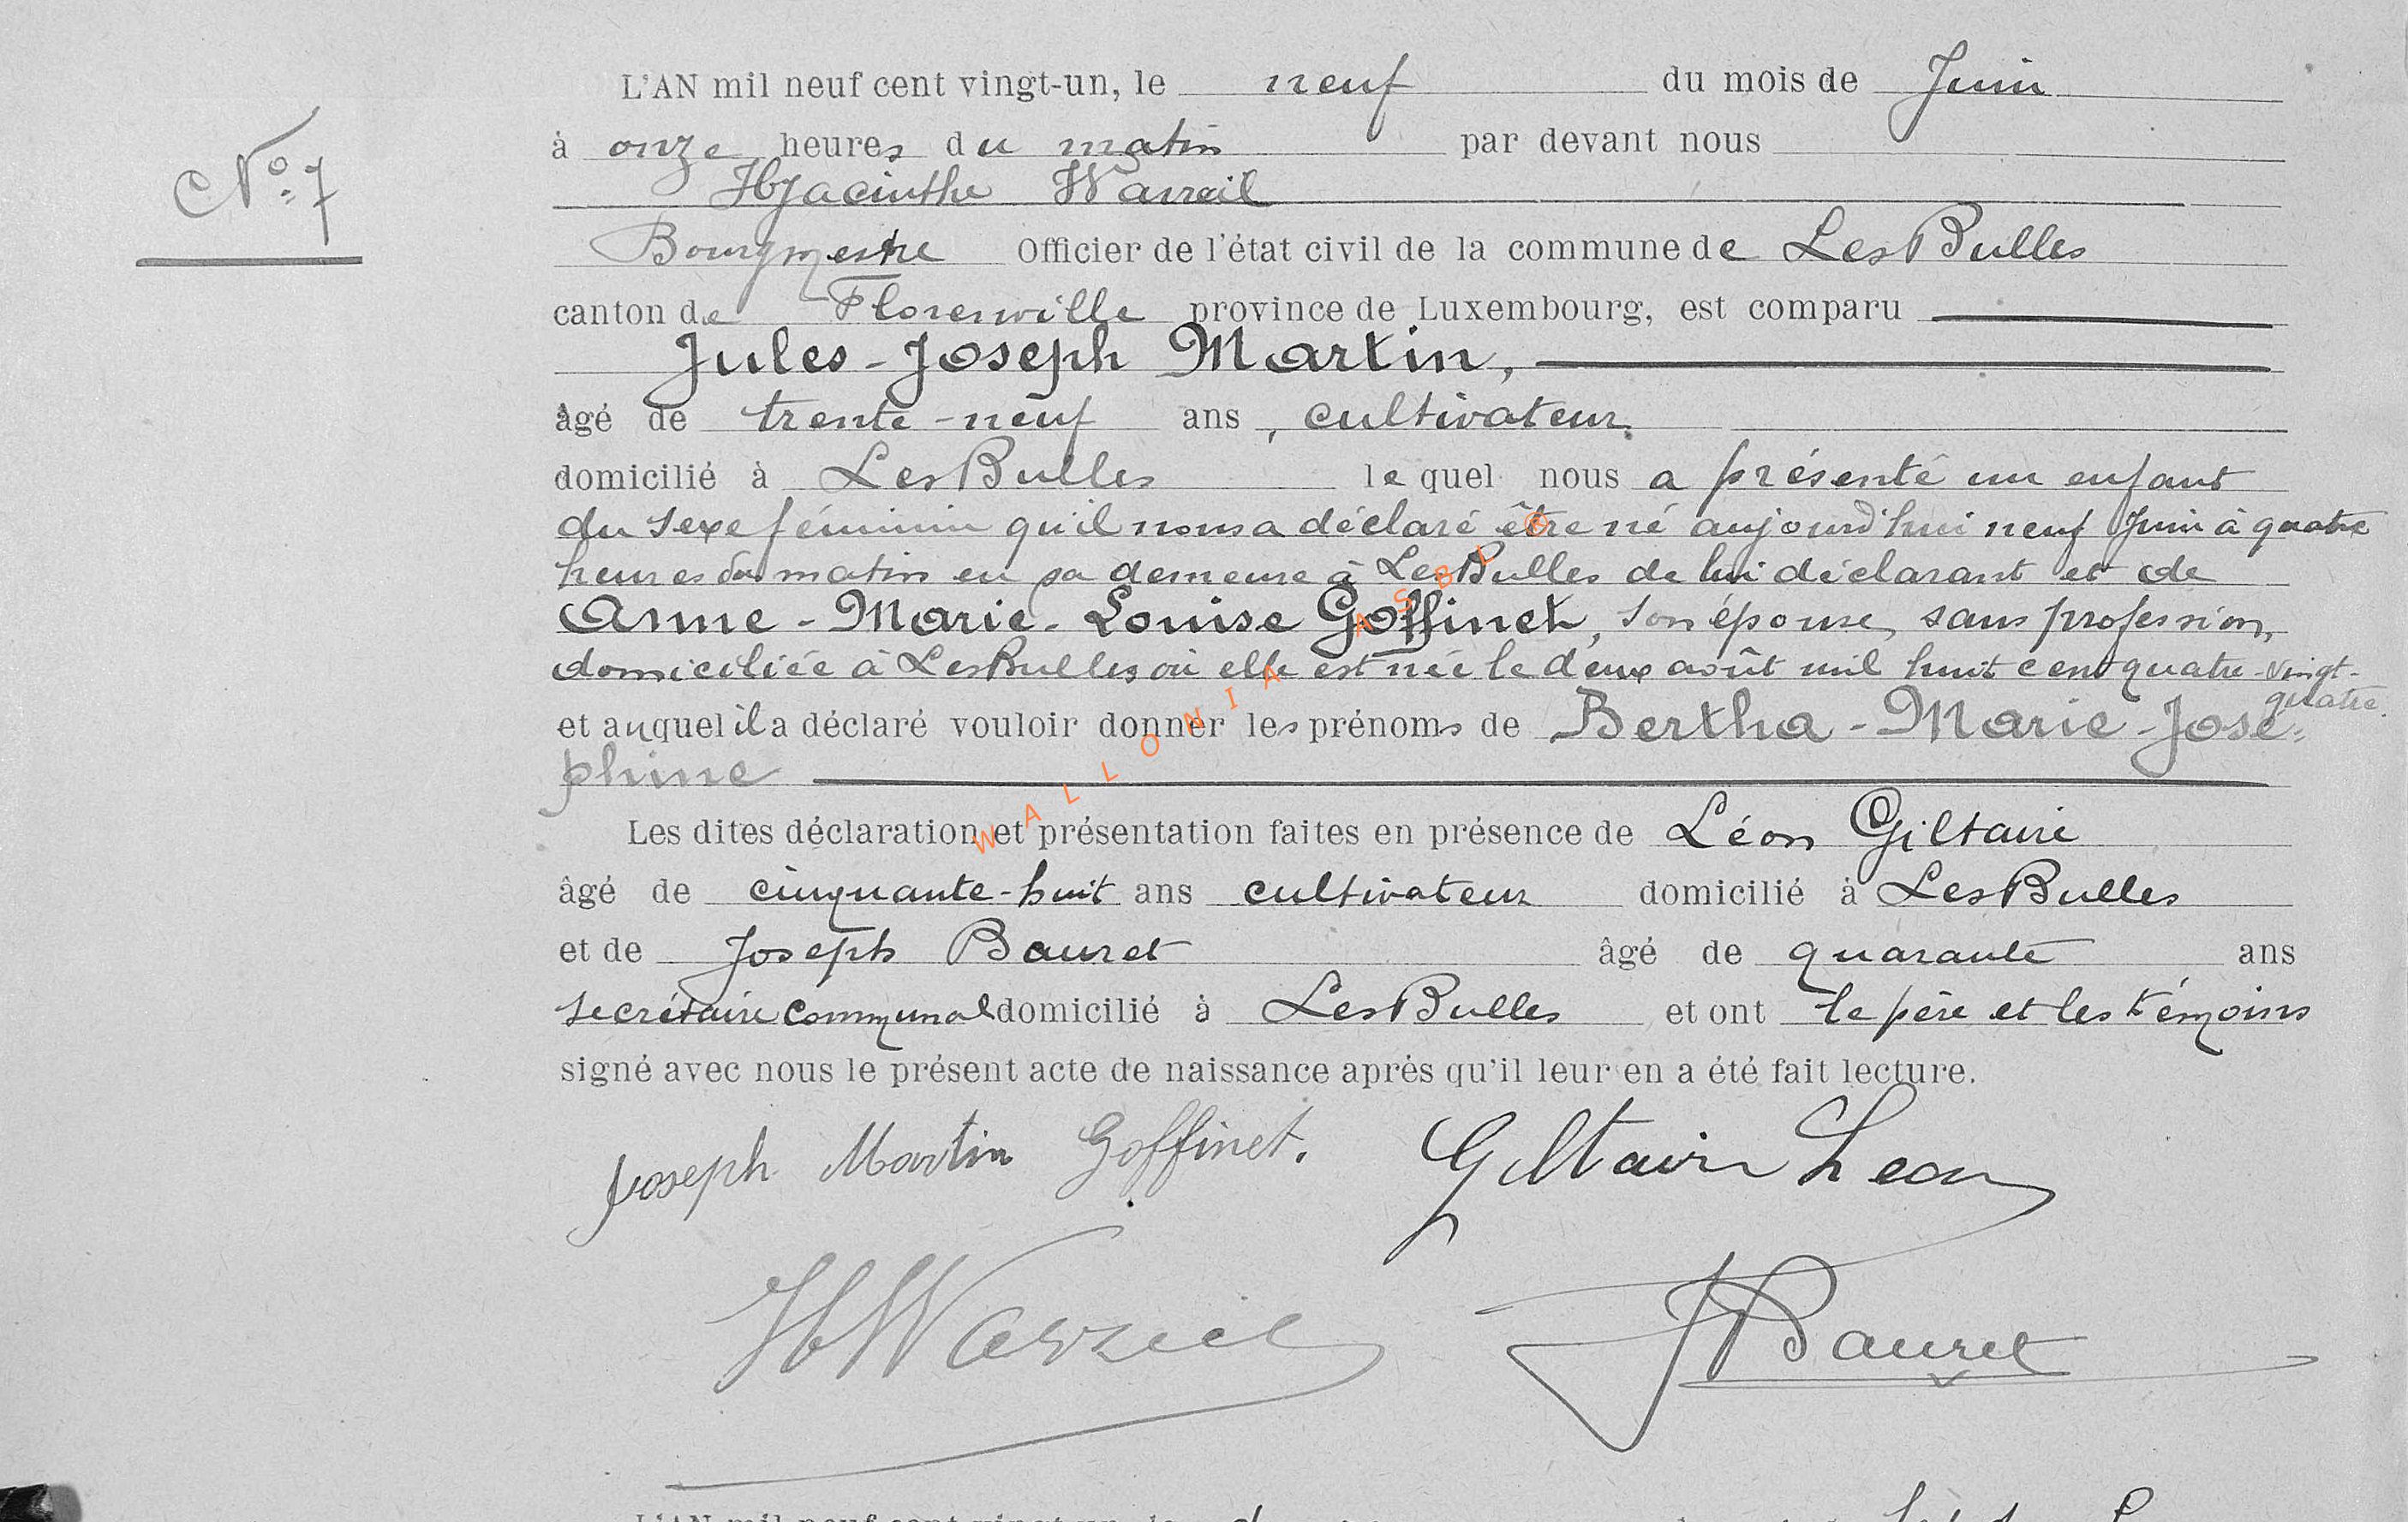 L'AN mil neuf cent vingt-un, le neuf du mois de Juin
à onze heures du matin par devant nous
N°: 7
Hyacinthe
Bourgmestre Officier de l'état civil de la commune de Les Bulles
canton de Florenville province de Luxembourg, est comparu
Jules-Joseph Martin,
âgé de trente-neuf ans, cultivateur.
domicilié à Les Bulles lequel nous a présenté un enfant
du sexe féminin qu'il nous a déclaré être né aujourd'hui neuf Juin à quatre
heures du matin en sa demeure à Les Bulles de lui déclarant et de
Anne-Marie-Louise Goffinet, son épouse, sans profession,
domiciliée à Les Bulles où elle est née le deux août mil huit cent quatre-vingt-
quatre.
et auquel il a déclaré vouloir donner les prénoms de Bertha-Marie-José=
phine
Les dites déclaration et présentation faites en présence de Léon Giltaire
âgé de cinquante-huit ans cultivateur domicilié à Les Bulles
et de Joseph Bauret âgé de quarante ans
secrétaire communal domicilié à Les Bulles et ont le père et les témoins
signé avec nous le présent acte de naissance après qu'il leur en a été fait lecture.
Joseph Martin Goffinet. Giltaire Leon
J Bauret
WALLONIA ASBL ®